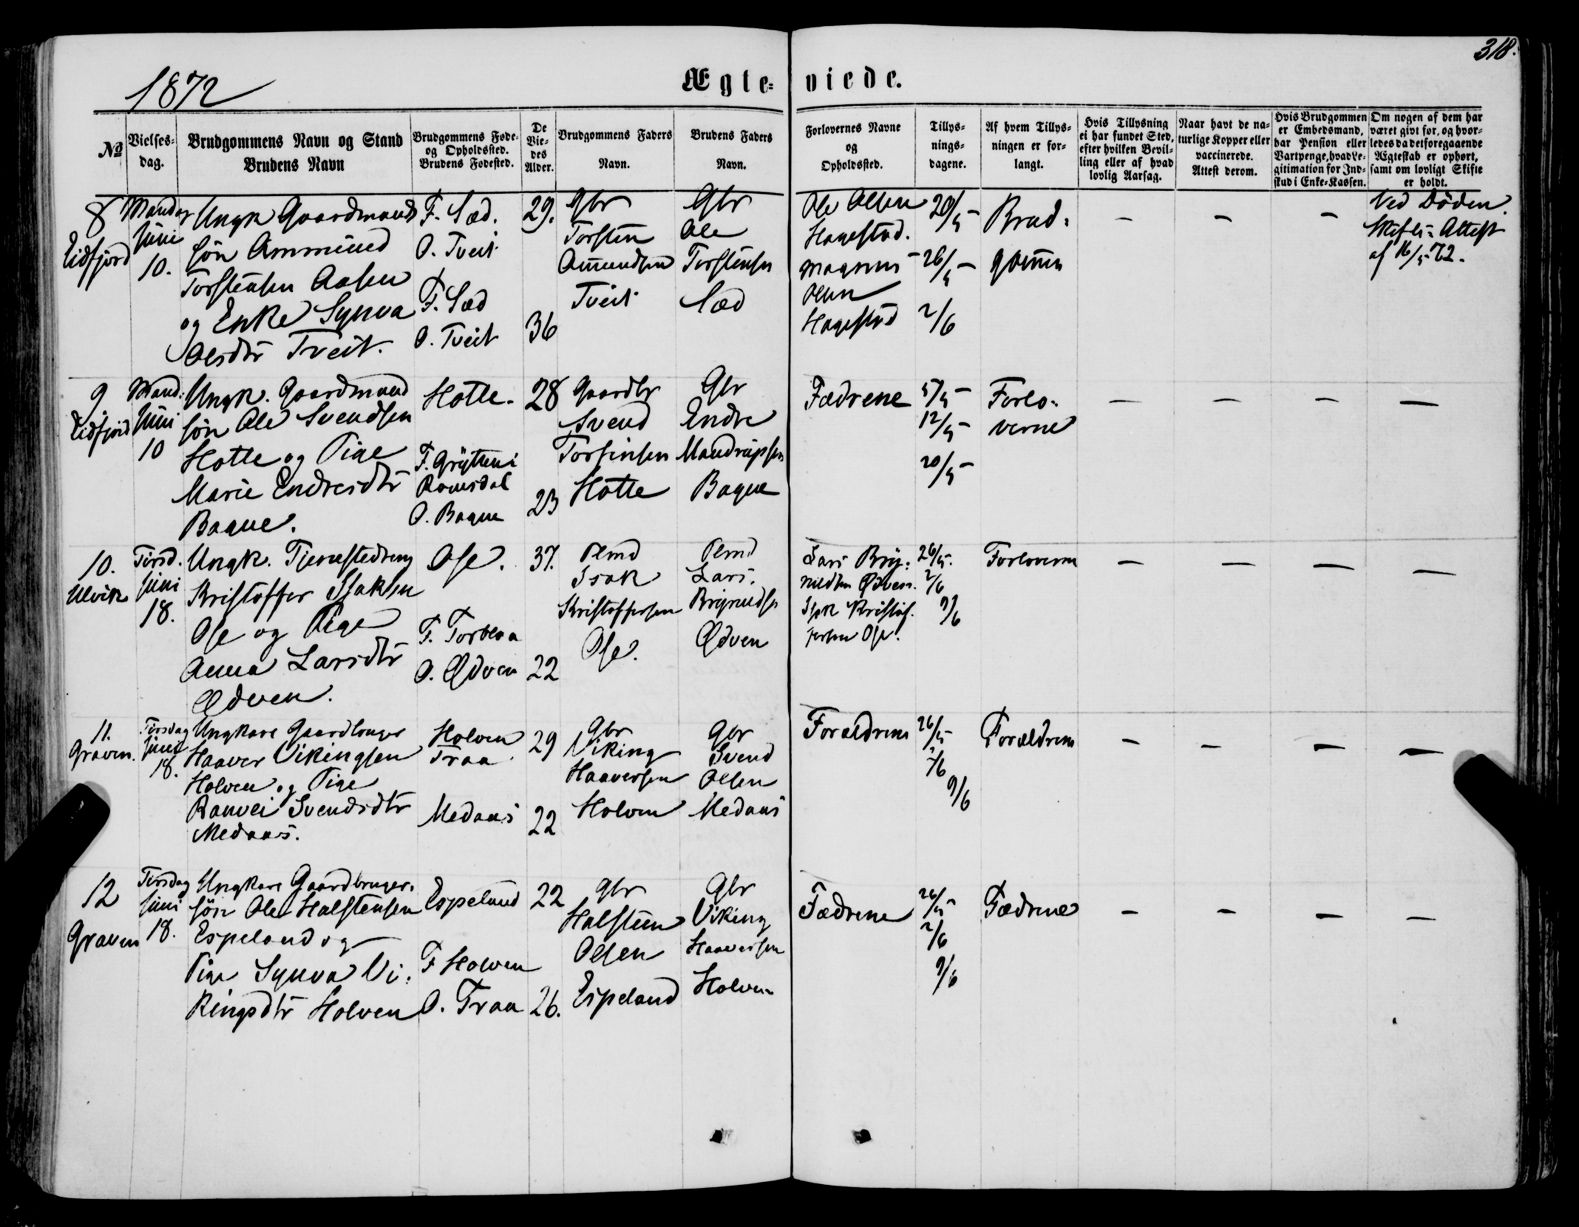 318.
1872
Ægte- viede.
№
Vielses-
dag.
Brudgommens Navn og Stand
Brudens Navn
Brudgommens Føde-
og Opholdssted.
Brudens Fødested.
De
Vie-
des
Alder.
Brudgommens Faders
Navn.
Brudens Faders
Navn.
Forlovernes Navne
og
Opholdssted.
Tillys-
nings-
dagene.
Af hvem Tillys-
ningen er for-
langt.
Hvis Tillysning
ei har fundet Sted,
efter hvilken Bevil-
ling eller af hvad
lovlig Aarsag.
Naar havt de na-
turlige Kopper eller
vaccinerede.
Attest derom.
Hvis Brudgommen
er Embedsmand,
har Pension eller
Vartpenge, hvad Le-
gitimation for Ind-
skud i Enke-Kassen.
Om nogen af dem har
været givt før, og hvor-
ledes da det foregaaende
Ægteskab er ophørt,
samt om lovligt Skifte
er holdt.
8
Eidfjord
Mandag
Juni
10.
Ungk. Gaardmands
søn Ammund
Torstensen Aasen
og Enke Synva
Olsdtr Tveit.
F. Sæd.
O. Tveit
F. Sæd
O. Tveit
29.
36
Gbr
Torsten
Amundsen
Tveit
Gbr
Ole
Torstensen
Sæd
Ole Olsen
Hagestad.
Magnus
Olsen
Hagestad
20/5
26/5
2/6
Brud-
gommen
–
–
–
Ved Døden.
Skifte- Attest
af 16/5 72.
9
Eidfjord
Mand.
Juni
10
Ungk. Gaardmand
søn Ole Svendsen
Hotle og Pige
Marie Endresdtr
Bagne.
Hotle.
F. Grytten i
Romsdal
O. Bagne
28
23
Gaardbr
Svend
Torfinsen
Hotle
Gbr
Endre
Mandrupsen
Bagne
Fædrene
5/5
12/5
20/5
Forlo-
verne
–
–
–
–
10.
Ulvik
Tirsd.
Juni
18.
Ungk. Tjenestedreng
Kristoffer Isaksen
Ose og Pige
Anna Larsdtr
Ødven.
Ose.
F. Torblaa
O. Ødven
37.
22
Plmd
Isak
Kristoffersen
Ose.
Plmd
Lars
Brynildsen
Ødven
Lars Bryn-
nildsen Ødven.
Isak Kristof-
fersen Ose.
26/5.
2/6
9/6
Forloverne
–
–
–
–
11.
Graven.
Tirsdag
Juni
18.
Ungkarl Gaardbruger
Haaver Vikingsen
Holven og Pige
Ranvei Svendsdtr
Medaas.
Holven
Traa
Medaas
29
22
Gbr
Viking
Haaversen
Holven
Gbr
Svend
Olsen
Medaas
Forældrene
26/5
2/6
9/6
Forældrene
–
–
–
–
12
Graven
Tirsdag
Juni
18.
Ungkarl Gaardbruger-
søn Ole Halstensen
Espeland og
Pige Synva Vi-
kingsdtr Holven
Espeland
F Holven
O. Traa
22
26.
Gbr
Halsteen
Olsen
Espeland
Gbr
Viking
Haaversen
Holven
Fædrene
26/5
2/6
9/6
Fædrene
–
–
–
–